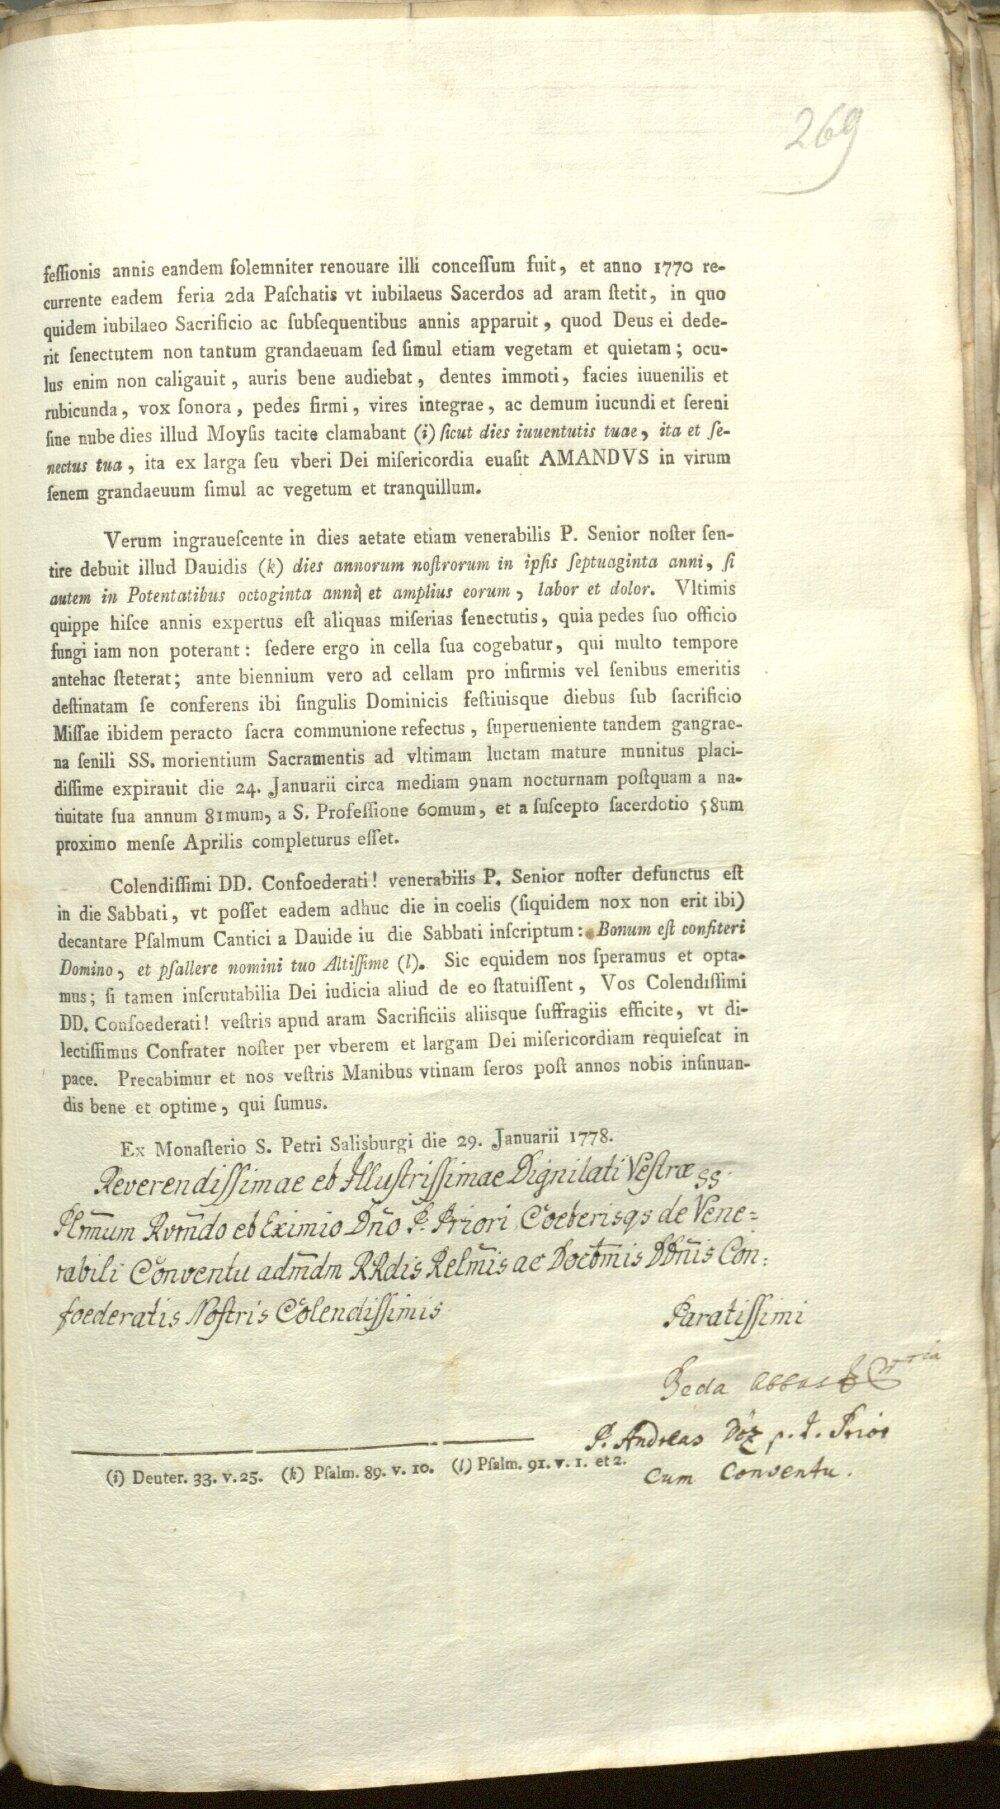 269
feſſionis annis eandem ſolemniter renouare illi conceſſum fuit, et anno 1770 re-
currente eadem feria 2da Paſchatis vt iubilaeus Sacerdos ad aram ſtetit, in quo
quidem iubilaeo Sacrificio ac ſubſequentibus annis apparuit, quod Deus ei dede-
rit ſenectutem non tantum grandaeuam ſed ſimul etiam vegetam et quietam; ocu-
lus enim non caligauit, auris bene audiebat, dentes immoti, facies iuuenilis et
rubicunda, vox ſonora, pedes firmi, vires integrae, ac demum iucundi et ſereni
ſine nube dies illud Moyſis tacite clamabant (i) ſicut dies iuuentutis tuae, ita et ſe-
nectus tua, ita ex larga ſeu vberi Dei miſericordia euaſit AMANDVS in virum
ſenem grandaeuum ſimul ac vegetum et tranquillum.
Verum ingraueſcente in dies aetate etiam venerabilis P. Senior noſter ſen-
tire debuit illud Dauidis (k) dies annorum noſtrorum in ipſis ſeptuaginta anni, ſi
autem in Potentatibus octoginta anni et amplius eorum, labor et dolor. Vltimis
quippe hiſce annis expertus eſt aliquas miſerias ſenectutis, quia pedes ſuo officio
fungi iam non poterant: ſedere ergo in cella ſua cogebatur, qui multo tempore
antehac ſteterat; ante biennium vero ad cellam pro infirmis vel ſenibus emeritis
deſtinatam ſe conferens ibi ſingulis Dominicis feſtiuisque diebus ſub ſacrificio
Miſſae ibidem peracto ſacra communione refectus, ſuperueniente tandem gangrae-
na ſenili SS. morientium Sacramentis ad vltimam luctam mature munitus placi-
diſſime expirauit die 24. Januarii circa mediam 9nam nocturnam poſtquam a na-
tiuitate ſua annum 81mum, a S. Profeſſione 60mum, et a ſuſcepto ſacerdotio 58um
proximo menſe Aprilis completurus eſſet.
Colendiſſimi DD. Confoederati! venerabilis P. Senior noſter defunctus eſt
in die Sabbati, vt poſſet eadem adhuc die in coelis (ſiquidem nox non erit ibi)
decantare Pſalmum Cantici a Dauide iu die Sabbati inſcriptum: Bonum eſt confiteri
Domino, et pſallere nomini tuo Altiſſime (l). Sic equidem nos ſperamus et opta-
mus; ſi tamen inſcrutabilia Dei iudicia aliud de eo ſtatuiſſent, Vos Colendiſſimi
DD. Confoederati! veſtris apud aram Sacrificiis aliisque ſuffragiis efficite, vt di-
lectiſſimus Confrater noſter per vberem et largam Dei miſericordiam requieſcat in
pace. Precabimur et nos veſtris Manibus vtinam ſeros poſt annos nobis inſinuan-
dis bene et optime, qui ſumus.
Ex Monaſterio S. Petri Salisburgi die 29. Januarii 1778.
Reverendiſſimae et Illuſtriſſimae Dignitati Veſtræ
Plm̄um Rvm̄do et Eximio Dn̄o P. Priori Cœterisqs de Vene=
rabili Conventu adm̄dm RRdis Relm̄is ac Doctm̄is DDn̄is Con:
foederatis Noſtris Colendiſſimis
Paratiſſimi
Beda Abbas
P. Andreas p. t. Prior
Cum Conventu.
(i) Deuter. 33. v. 25. (k) Pſalm. 89. v. 10. (l) Pſalm. 91. v. 1. et 2.